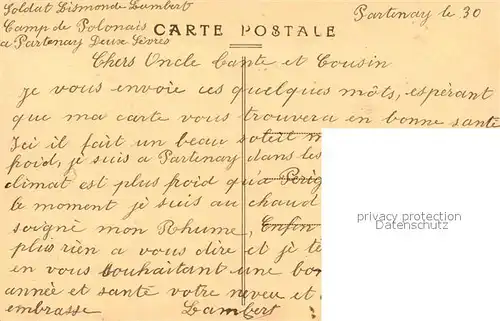 Soldat Dismonde Lambert
Partenay le 30
Camp de Polonais
CARTE POSTALE
a Partenay Deux Sèvres
Chers Oncle Tante et Cousin
Je vous envoie ces quelques môts, espérant
que ma carte vous trouvera en bonne santé
Ici il fait un beau soleil m
froid, je suis a Partenay dans les
climat est plus froid qu'a Périg
le moment je suis au chaud
soigné mon Rhume, Enfin
plus rien a vous dire et je te
en vous souhaitant une bo
année et santé votre neveu et
embrasse Lambert
privacy protection
Datenschutz